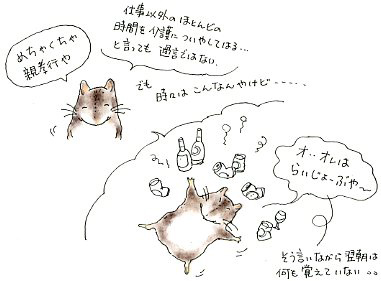 仕事以外のほとんどの
時間を介護についやしてはる…
と言っても過言ではない。
めちゃくちゃ
親孝行や
でも
時々はこんなんやけど……
オ…オレは
らいじょーぶや〜
そう言いながら翌朝は
何を覚えていない。。